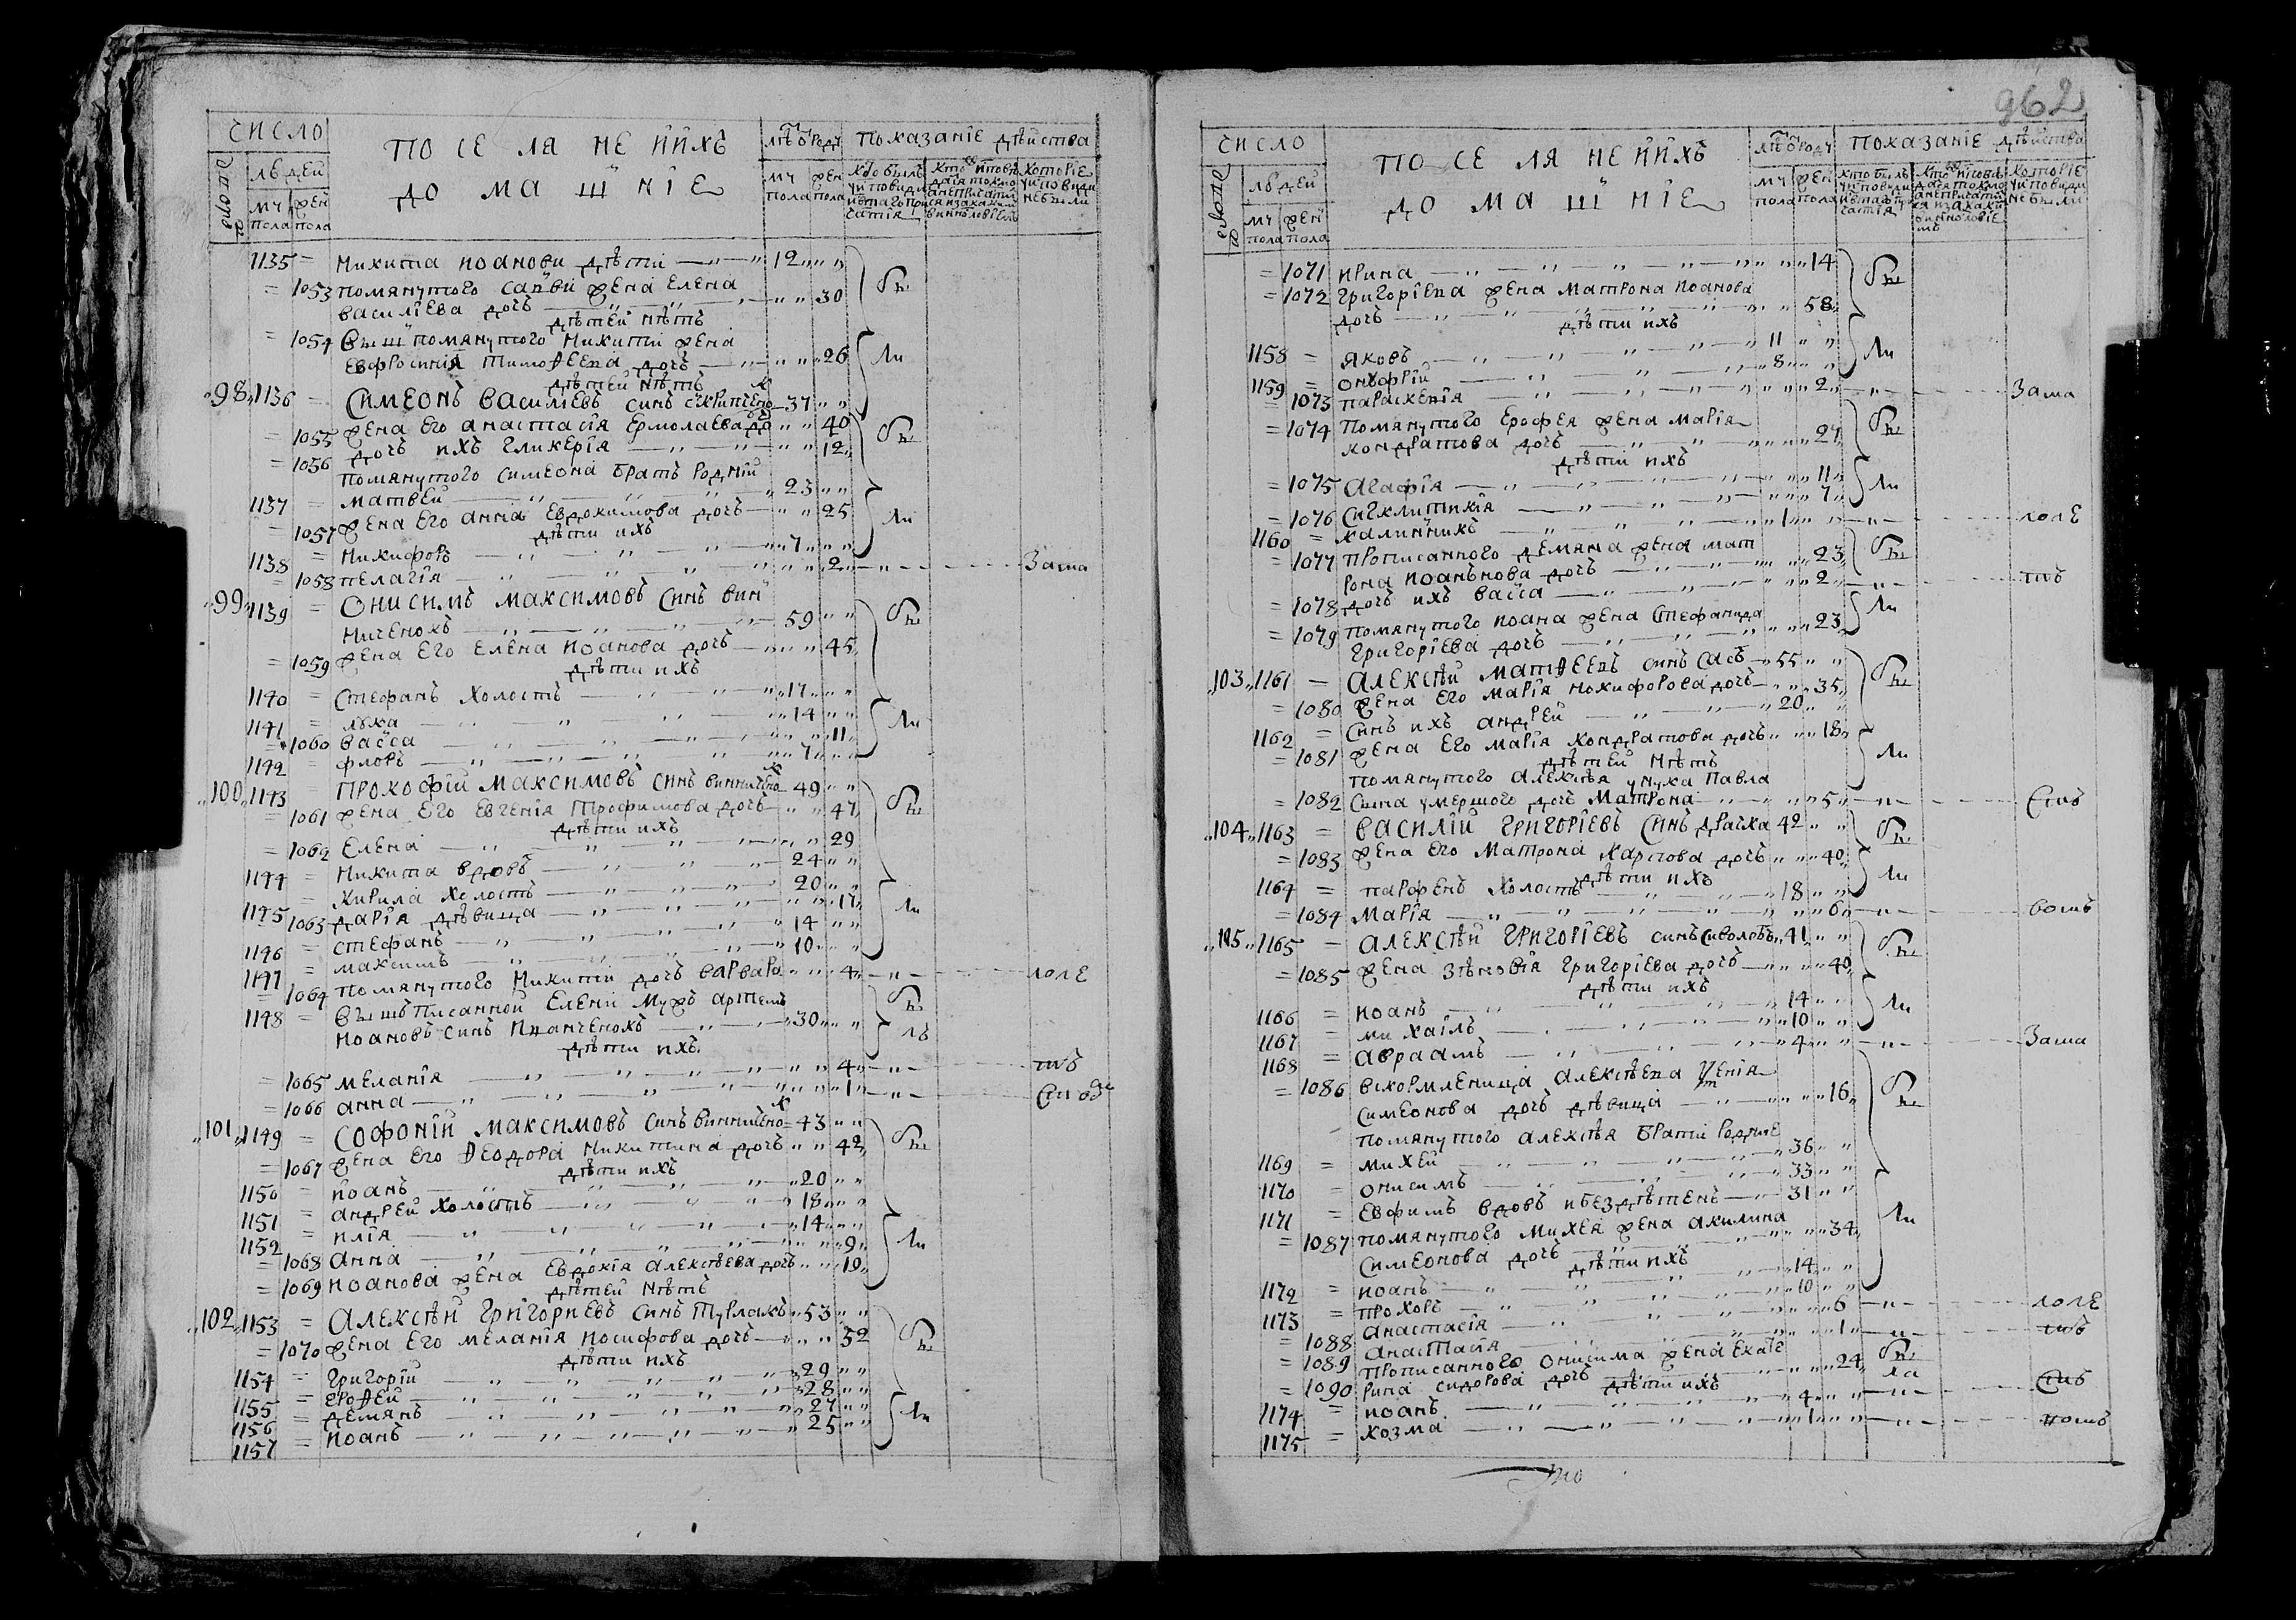 ЧИСЛО
ПОСЕЛЯНЕ ИИХЪ
ДОМАШНІЕ
ЛѢ Ѿ РОДУ
ПОКАЗАНІЕ ДѢЙСТВА
ЛЮДЕЙ
МУ пола
ЖЕН пола
МУ пола
ЖЕН пола
1135 = Никита Иоанови дѣти 12
= 1053 помянутого Савви жена Елена
Василіева дочь 30
дѣтей нѣтъ
= 1054 Вышпомянутого Никити жена
Евфросинія Тимоѳеева дочь 26
дѣтей нѣтъ
98 1136 Симеонъ Василіевъ синъ 37
= 1055 жена его Анастасія Ермолаева до 40
= 1056 дочь ихъ Гликерія 12
помянутого Симеона братъ родній
1137 = Матвей 23
= 1057 жена его Анна Евдокимова дочь 25
дѣти ихъ
1138 = Никифоръ 7
= 1058 Пелагія 2
99 1139 = Онисимъ Максимовъ синъ Вин
ниченокъ 59
= 1059 жена его Елена Иоанова дочь 45
дѣти ихъ
1140 = Стефанъ холостъ 17
1141 = Лука 14
= 1060 Васса 11
1142 = Флоръ 7
100 1143 Прокофій Максимовъ синъ Винниченко 49
= 1061 жена его Евгенія Трофимова дочь 47
дѣти ихъ
= 1062 Елена 29
1144 = Никита вдовъ 24
1145 = Кирила холостъ 20
1063 Дарія дѣвица 17
1146 = Стефанъ 14
1147 = Максимъ 10
= 1064 помянутого Никити дочь Варвара 4 поле
1148 = Вышъписанной Елени мужъ Артемъ
Иоановъ синъ 30
дѣти ихъ
= 1065 Меланія 4
= 1066 Анна 1
101 1149 = Софоній Максимовъ синъ Винниченко 43
= 1067 жена его Ѳеодора Никитина дочь 42
дѣти ихъ
1150 = Иоанъ 20
1151 = Андрей холостъ 18
1152 = Илія 14
= 1068 Анна 9
= 1069 Иоанова жена Евдокія Алексѣева дочь 19
дѣтей нѣтъ
102 1153 = Алексѣй Григориевъ синъ Турлакъ 53
= 1070 жена его Меланія Иосифова дочь 52
дѣти ихъ
1154 = Григорій 29
1155 = Ероѳей 28
1156 = Демянъ 27
1157 = Иоанъ 25
962
ЧИСЛО
ПОСЕЛЯНЕ ИИХЪ
ДОМАШНІЕ
ЛѢ Ѿ РОДУ
ПОКАЗАНІЕ ДѢЙСТВА
ЛЮДЕЙ
МУ пола
ЖЕН пола
МУ пола
ЖЕН пола
= 1071 Ирина 14
= 1072 Григоріева жена Матрона Иоанова
дочь 58
дѣти ихъ
1158 = Яковъ 11
1159 = Онуфрій 8
= 1073 Параскевія 2
= 1074 Помянутого Ерофея жена Марія
Кондратова дочь 27
дѣти ихъ
= 1075 Агафія 11
= 1076 Сигклитикія 7
1160 = Калинникъ 1 поле
= 1077 Прописанного Демяна жена Мат
рона Иоанънова дочь 23
= 1078 дочь ихъ Васса 2
= 1079 помянутого Иоана жена Стефанида
Григоріева дочь 23
103 1161 = Алексѣй Матѳеевъ синъ Сась 55
= 1080 жена его Марія Никифорова дочь 35
1162 = Синъ ихъ Андрей 20
= 1081 жена его Марія Кондратова дочь 18
дѣтей нѣтъ
помянутого Алексѣя унука Павла
= 1082 сина умершого дочь Матрона 5
104 1163 = Василій Григоріевъ синъ 42
= 1083 жена его Матрона Карпова дочь 40
дѣти ихъ
1164 = Парфенъ холостъ 18
= 1084 Марія 6
105 1165 = Алексѣй Григоріевъ синъ 41
= 1085 жена Зѣновія Григоріева дочь 40
дѣти ихъ
1166 = Иоанъ 14
1167 = Михаилъ 10
1168 = Авраамъ 4
= 1086 вскормленица Алексѣева
Симеонова дочь дѣвица 16
помянутого Алексѣя брати родние
1169 = Михей 36
1170 = Онисимъ 33
1171 = Евфимъ вдовъ и бездѣтенъ 31
= 1087 помянутого Михея жена Акилина
Симеонова дочь 34
дѣти ихъ
1172 = Иоанъ 14
1173 = Прохоръ 10
= 1088 Анастасія 6 поле
= 1089 Анастасія 1
= 1090 Прописанного Онисима жена Екате
рина Сидорова дочь 24
дѣти ихъ
1174 = Иоанъ 4
1175 = Козма 1